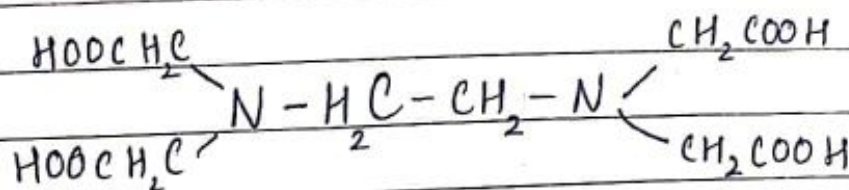 HOOCH₂C CH₂COOH
N - H₂C - CH₂ - N
HOOCH₂C CH₂COOH